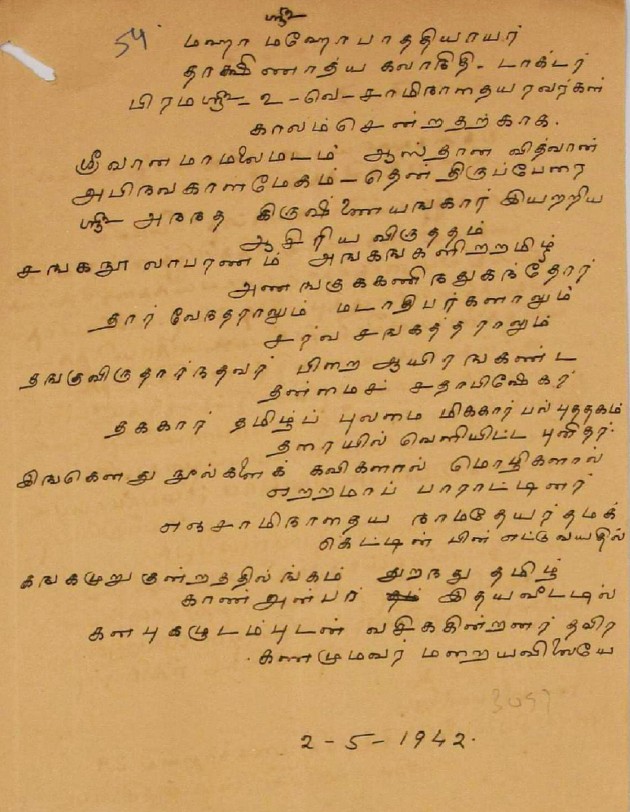 ஸ்ரீ
54
மஹா மஹோபாத்தியாயர்
தாக்ஷிணாத்ய கலாநிதி - டாக்டர்
பிரமஸ்ரீ - உ - வெ - சாமிநாதையரவர்கள்
காலம்சென்றதற்காக.
ஸ்ரீவானமாமலைமடம் ஆஸ்தான வித்வான்
அபிநவகாளமேகம் - தென்திருப்பேரை
ஸ்ரீ அநந்த கிருஷ்ணையங்கார் இயற்றிய
ஆசிரிய விருத்தம்
சங்கநூ லாபரணம் அங்கங்களிற்றமிழ்
அணங்குக்கணிந்துகந்தோர்
தார் வேந்தராலும் மடாதிபர்களாலும்
சர்வ சங்கத்தராலும்
தங்குவிருதார்ந்தவர் பிறை ஆயிரங்கண்ட
தன்மைச் சதாபிஷேகர்
தக்கார் தமிழ்ப் புலமை மிக்கார் பல்புத்தகம்
தரையில் வெளியிட்ட புனிதர்.
இங்கெனது நூல்களைக் கவிகளால் மொழிகளால்
ஏற்றமாப் பாராட்டினர்
சாமிநாதைய நாமதேயர் தமக்
கெட்டின் பின் எட்டுவயதில்
கங்கமுறு குன்றத்தில் துறந்து தமிழ்
காண் அன்பர் இதயவீட்டில்
களபுகழுடம்புடன் வசிக்கின்றனர் தவிர
கணமுமவர் மறையவிலையே
3097
2 - 5 - 1942.